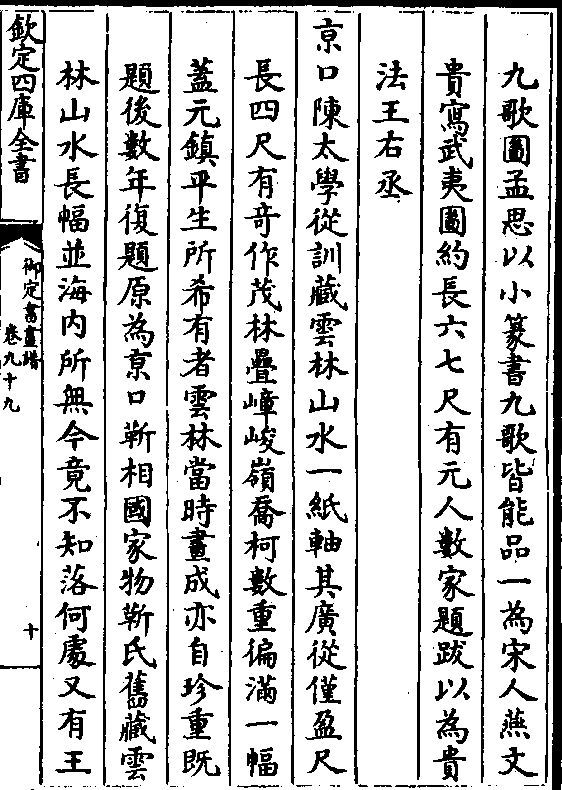 九歌圖孟思以小篆書九歌皆能品一為宋人燕文
貴寫武夷圖約長六七尺有元人數家題跋以為貴
法王右丞
京口陳太學從訓藏雲林山水一紙軸其廣從僅盈尺
長四尺有竒作茂林疊嶂峻嶺喬柯數重徧滿一幅
蓋元鎮平生所希有者雲林當時畫成亦自珍重既
題後數年復題原為京口靳相國家物靳氏舊藏雲
林山水長幅並海内所無今竟不知落何處又有王
欽定四庫全書
御定書畫譜
卷九十九
十